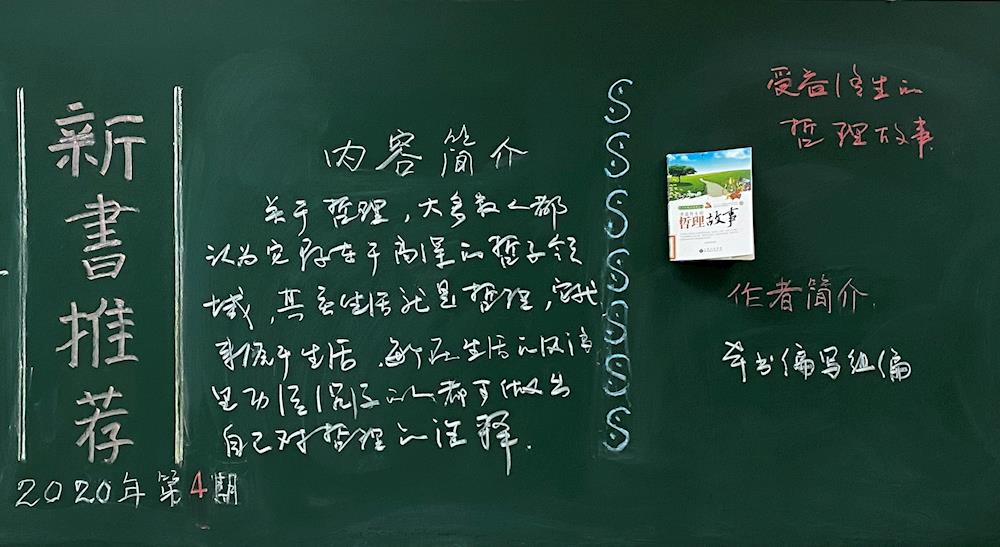 新書推荐
2020年第4期
内容简介
关于哲理，大多数人都
认为它存在于高深的哲学领
域，其实生活就是哲理，它就
来源于生活。每个在生活的
里
自己对哲理的注释.
S
S
S
S
S
S
S
受益终生的
哲理故事
哲理故事
作者简介.
本书编写组编